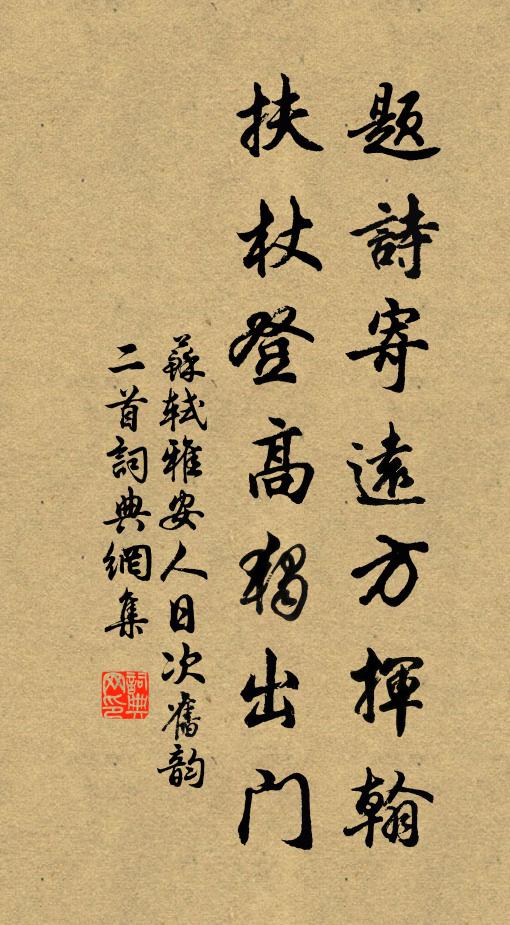 題詩寄遠方揮翰
扶杖登高獨出門
蘇軾雅安人日次舊韵
二首詞典網集
詞典
网印